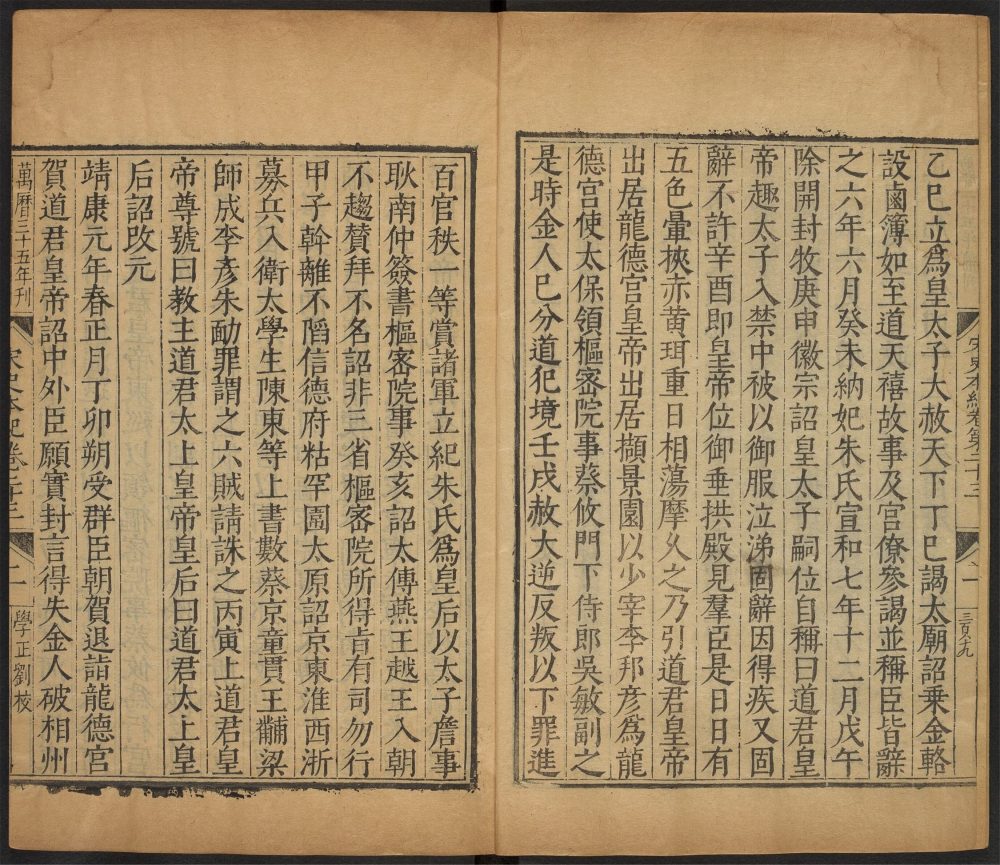 乙巳立爲皇太子大赦天下丁巳謁太廟詔乗金輅
設鹵簿如至道天禧故事及宮僚參謁並稱臣皆辭
之六年六月癸未納妃朱氏宣和七年十二月戊午
除開封牧庚申徽宗詔皇太子嗣位自稱曰道君皇
帝趣太子入禁中被以御服泣涕固辭因得疾又固
辭不許辛酉即皇帝位御垂拱殿見羣臣是日日有
五色暈挾赤黃珥重日相蕩摩乆之乃引道君皇帝
出居龍德宮皇帝出居擷景園以少宰李邦彦爲龍
德宮使太保領樞宻院事蔡攸門下侍郎吳敏副之
是時金人巳分道犯境壬戌赦大逆反叛以下罪進
宋史本紀卷第二十三
一
三百九
百官秩一等賞諸軍立妃朱氏爲皇后以太子詹事
耿南仲簽書樞宻院事癸亥詔太傅燕王越王入朝
不趨賛拜不名詔非三省樞宻院所得旨有司勿行
甲子斡離不䧟信德府粘罕圍太原詔京東淮西浙
募兵入衛太學生陳東等上書數蔡京童貫王黼梁
師成李彦朱勔罪謂之六賊請誅之丙寅上道君皇
帝尊號曰教主道君太上皇帝皇后曰道君太上皇
后詔攺元
靖康元年春正月丁卯朔受群臣朝賀退詣龍德宮
賀道君皇帝詔中外臣願實封言得失金人破相州
萬曆三十五年刊
宋史本紀卷二十三
二
學正劉校